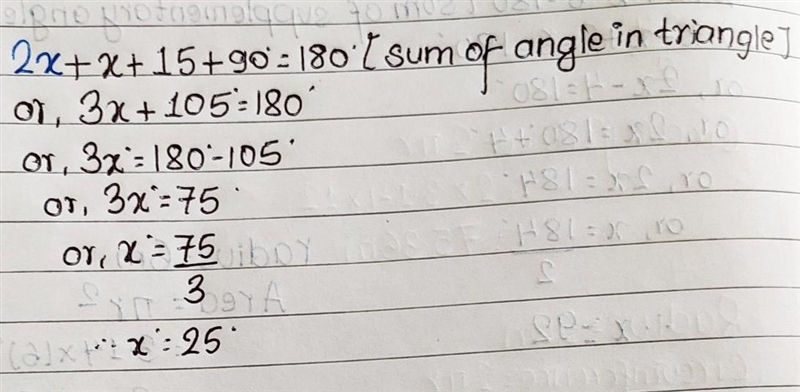 2x+x+15+90°=180° [sum of angle in triangle]
or, 3x+105°=180°
or, 3x°=180°-105°
or, 3x°=75°
or, x°=75/3
∴ x°=25°